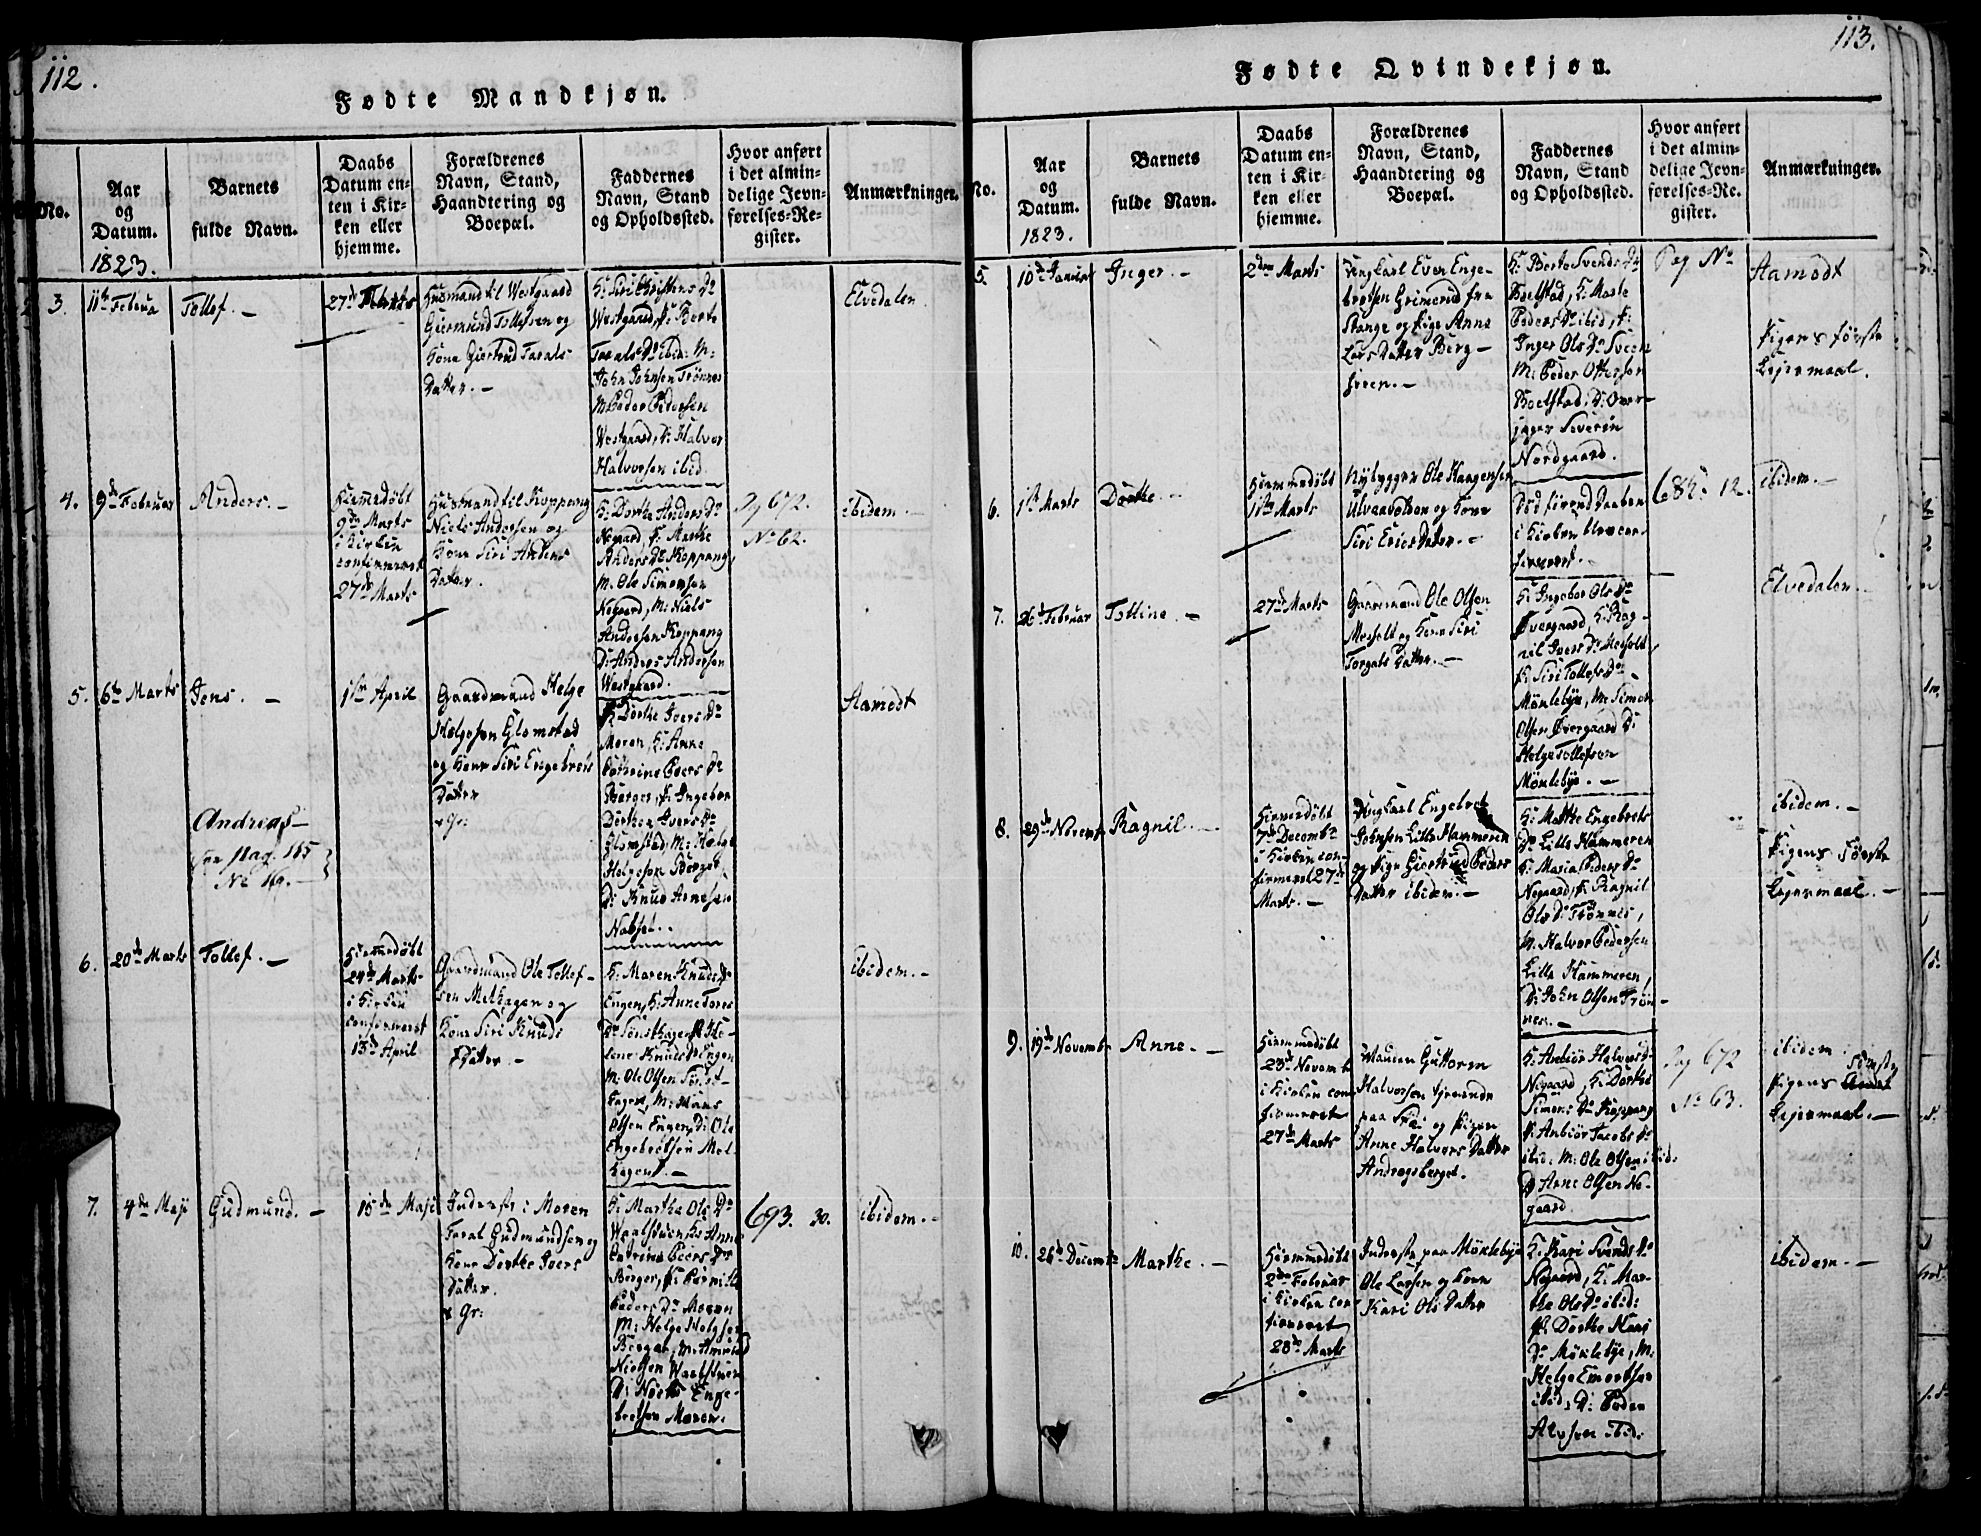 112.
Fødte Mandkjøn.
No.
Aar
og
Datum.
1823.
Barnets
fulde Navn.
Daabs
Datum en-
ten i Kir-
ken eller
hjemme.
Forældrenes
Navn, Stand,
Haandtering og
Boepæl.
Faddernes
Navn, Stand
og Opholdssted.
Hvor anført
i det almin-
delige Jevn-
førelses-Re-
gister.
Anmærkninger.
3.
11te Februa
Tollef. -
27de Marts
Husmand til Westgaard
Giermund Tollefsen og
Kone Giertrud Taralds
Datter. -
K: Siri Christens Dr
Westgaard, P: Berte
Taralds Dr ibid: M:
John Johnsen Trønnes
M: Peder Pedersen
Westgaard, D: Halvor
Halvorsen ibid
Elvedalen
4.
9de Februar
Anders. -
Hiemedøbt
9de Marts
i Kirken
confirmeret
27de Marts
Husmand til Koppang
Niels Andersen og
Kone Siri Anders
Datter.
K: Dorthe Anders Dr
Negaard, P: Marthe
Anders Dr Koppang,
M: Ole Simensen
Negaard, M: Niels
Andersen Koppang
D: Andres Andersen
Westgaard.
Pag 672.
No 62.
ibidem. -
5.
6te Marts
Jens. -
1ste April
Gaardmand Helge
Helgesen Glomstad
og Kone Siri Engebrets
Datter
+ Gr:
K: Dorthe Ivers Dr
Moren, K: Anne
Cathrine Peers Dr
Berger, P: Ingebor
Dorthea Ivers Dr
Glomstad, M: Helge
Helgesen Berget
D: Knud Arnesen
Nabset. -
Aamodt
Andreas -
see Pag. 115
No 19. -
6.
20de Marts
Tollef. -
Hiemmedøbt
24de Marts
i Kirken
confirmeret
13de April
Gaardmand Ole Tollef-
sen Methagen og
Kone Siri Knuds
Datter. -
K: Maren Knuds Dr
Engen, K: Anne Tores
M: Ole Olsen
M: Hans
Olsen Engen, D: Ole
Engebretsen Met-
hagen. -
ibidem. -
7.
4de Maji
Gudmund. -
15de Maji
Inderst i Moren
Taral Gudmundsen og
Kone Dorthe Ivers
Datter.
+ Gr:
K: Martha Ols Dr
Catrine Peers Dr
Berger, P: Pernille
Peders Dr Moren
M: Helge Helgesen
Berget, M:
Nielsen
D: Engebretsen Moren.
693. 30.
ibidem. -
113.
Fødte Qvindekjøn.
No.
Aar
og
Datum.
1823.
Barnets
fulde Navn.
Daabs
Datum en-
ten i Kir-
ken eller
hjemme.
Forældrenes
Navn, Stand,
Haandtering og
Boepæl.
Faddernes
Navn, Stand
og Opholdssted.
Hvor anført
i det almin-
delige Jevn-
førelses-Re-
gister.
Anmærkninger.
5.
10de Januar
Inger. -
2den Marts
Ungkarl Even Enge-
bretsen Grimerud fra
Stange og Pige Anne
Lars Datter Berg-
K: Berte Svends Dr
Bolstad, K: Marte
Peders Dr ibid, P:
Inger Ols Dr Sveen
M: Peder Ottersen
Bolstad, D: Over-
jæger Siverin
Nordgaard.
Pag No
Aamodt
Pigens første
Leiermaal.
6.
1ste Marts
Dorthe. -
Hiemmedøbt
1ste Marts
Nybygger Ole Haagensen
Ulvaavolden og Kone
Siri Erics Datter. -
Død førend Daaben
i Kirken blev con-
firmeret. -
685. 12.
ibidem. -
7.
26de Februar
Tolline. -
27de Marts
Gaardmand Ole Olsen
Messelt og Kone Siri
Torgals Datter. -
K: Ingebor Ols Dr
Øvergaard, K: Rag-
nil Ivers Dr Messelt,
P: Siri Tollefs Dr
Møklebye, M: Simen
Olsen Øvergaard D:
Helge Tollefsen
Møklebye. -
Elvedalen. -
8.
29de Novembr
Ragnil. -
Hiemmedøbt
7de Decembr
i Kirken con-
firmeret 27de
Marts. -
Ungkarl Engebret
Lille Hammeren
og Pige Giertrud Peders
Datter ibidem. -
K: Marthe Engebrets
Dr Lille Hammeren
K: Maria Peders Dr
Negaard, P: Ragnil
Ols Dr Trønnes,
M: Halvor Pedersen
Lille Hammeren,
D: John Olsen Trøn-
nes. -
ibidem. -
Pigens Første
Leiermaal. -
9.
19de Novembr
Anne. -
Hiemmedøbt
23de Novemb
i Kirken con-
firmeret
27de Marts
Guttorm
Halvorsen tjenende
paa og Pigen
Anne Halvors Datter
Andregsberget.
K: Anbiør Halvors Dr
Negaard, K: Dorthe
Simens Dr Koppang
P: Anbiør Jacobs Dr
ibid: M: Ole Olsen ibid:
D: Arne Olsen Ne-
gaard.
Pag 672
No 63.
ibidem.
Første
Pigens
Leiermaal. -
10.
26de Decembr
Marthe. -
Hiemmedøbt
2den Februar
i Kirken con-
firmeret
28de Marts
Inderste paa Møklebye
Ole Larsen og Kone
Kari Ols Datter
K: Kari Svends Dr
Negaard, K: Mar-
the Ols Dr ibid:
P: Dorthe Hans
Dr Møklebye, M:
Helge Emertsen
ibid, D: Peder
ibid.
ibidem. -